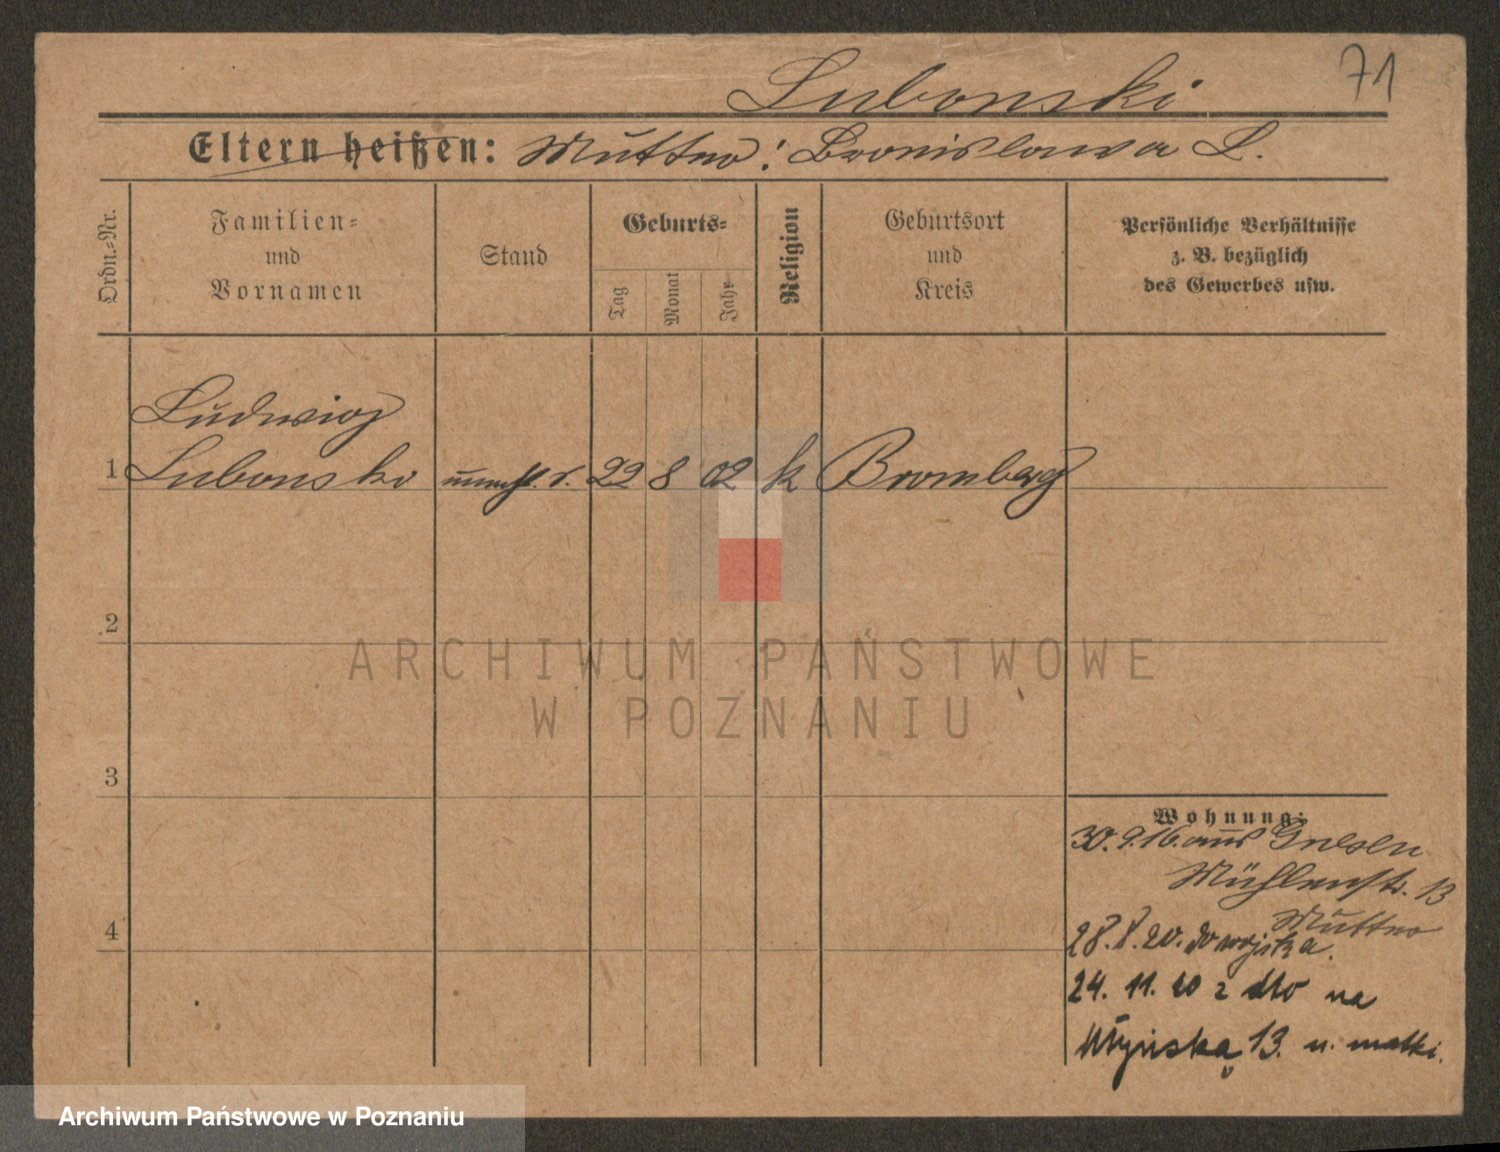 71
Lubonski
Eltern heißen: Mutter: Bronislawa L.
Ordn.=Nr.
Familien=
und
Vornamen
Stand
Geburts=
Tag
Monat
Jahr
Religion
Geburtsort
und
Kreis
Persönliche Verhältnisse
z. B. bezüglich
des Gewerbes usw.
Ludwig
1 Lubonski 22 8 02 k Bromberg
2
3
4
Wohnung:
30. 9. 16. aus Gnesen
Mühlenstr. 13
Mutter
28. 8. 20. do wojska.
24. 11. 20 z dto na
Młyńską 13. u. matki.
ARCHIWUM PAŃSTWOWE
W POZNANIU
Archiwum Państwowe w Poznaniu